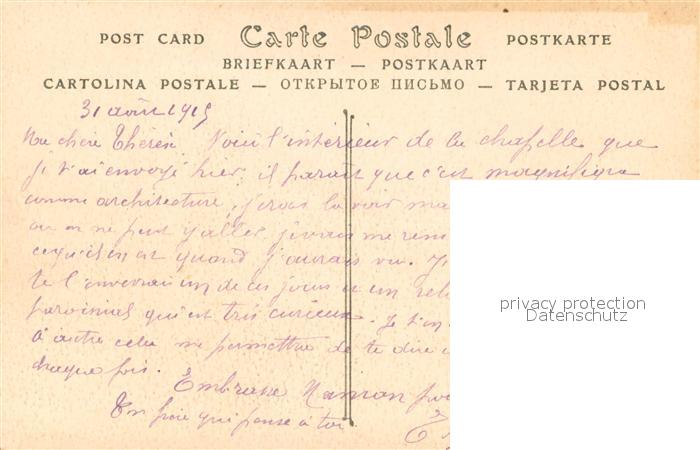 POST CARD Carte Postale POSTKARTE
BRIEFKAART — POSTKAART
CARTOLINA POSTALE — ОТКРЫТОЕ ПИСЬМО — TARJETA POSTAL
31 août 1915
Ma chère Thérèse. Voici l'intérieur de la chapelle que
je t'ai envoyé hier, il paraît que c'est magnifique
comme architecture, j'irais la voir
on ne peut y aller,
ce qu'il en est quand j'aurais vu. Je
te l'enverrai un de ces jours
qui est très curieux. Je t'en
à autre cela me permettra de te dire
chaque fois. Embrasse Maman pour
Ton qui pense à toi
privacy protection
Datenschutz